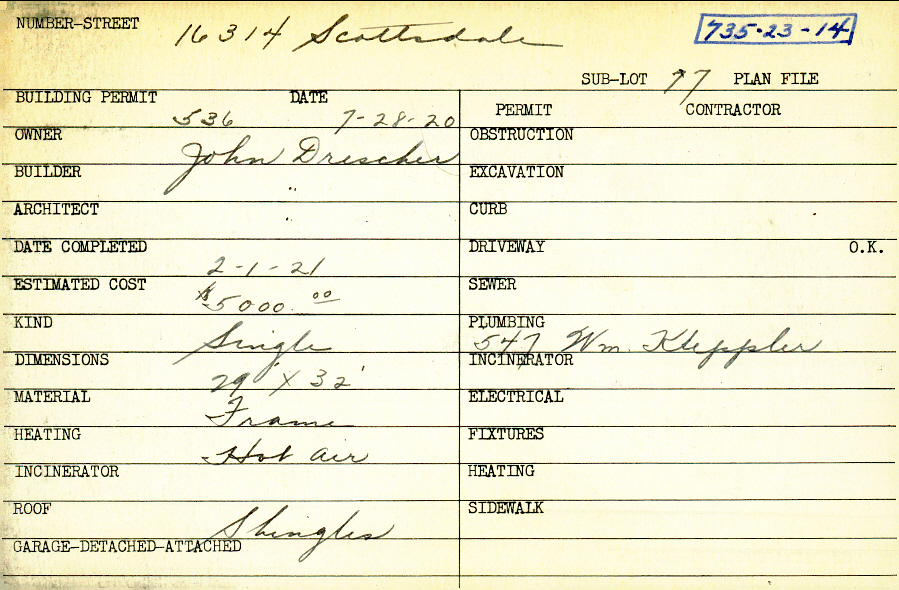 NUMBER-STREET 16314 Scottsdale 735-23-14
SUB-LOT 77 PLAN FILE
BUILDING PERMIT 536 DATE 7-28-20
PERMIT CONTRACTOR
OWNER John Drescher
OBSTRUCTION
BUILDER "
EXCAVATION
ARCHITECT "
CURB
DATE COMPLETED 2-1-21
DRIVEWAY O.K.
ESTIMATED COST $5000.00
SEWER
KIND Single
PLUMBING 547 Wm. Kleppler
DIMENSIONS 29' X 32'
INCINERATOR
MATERIAL Frame
ELECTRICAL
HEATING Hot air
FIXTURES
INCINERATOR
HEATING
ROOF Shingles
SIDEWALK
GARAGE-DETACHED-ATTACHED